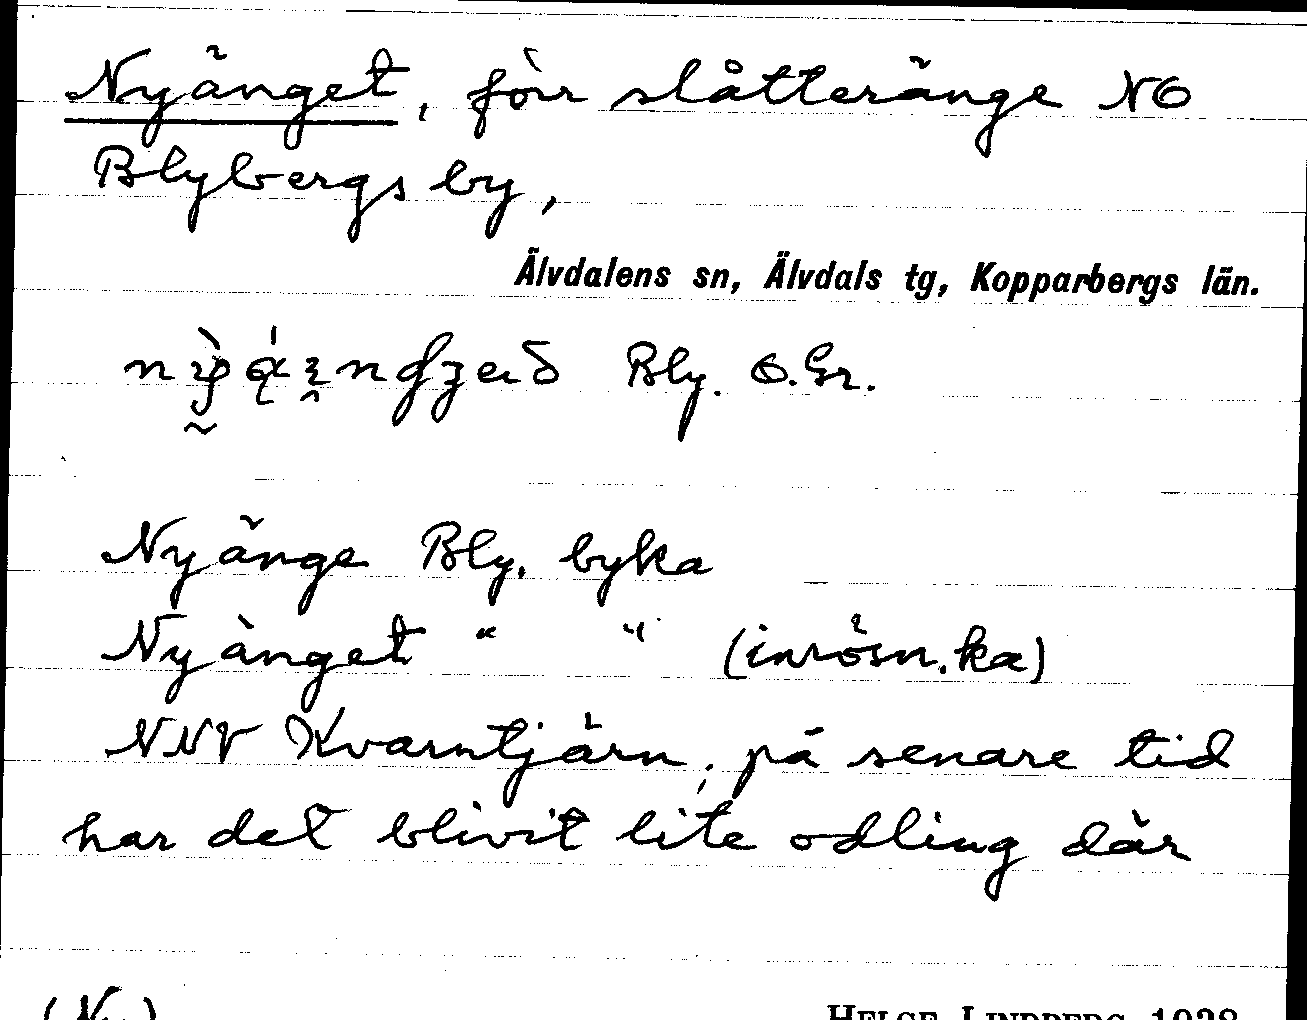 Nyänget, förr slåtteränge NO
Blybergs by,
Älvdalens sn, Älvdals tg, Kopparbergs län.
Bly. O.Gr.
Nyänge Bly. byka
Nyänget " " (inrösn.ka)
NNV Kvarntjärn, på senare tid
har det blivit lite odling där
(Ny)
HELGE LINDBERG 1938